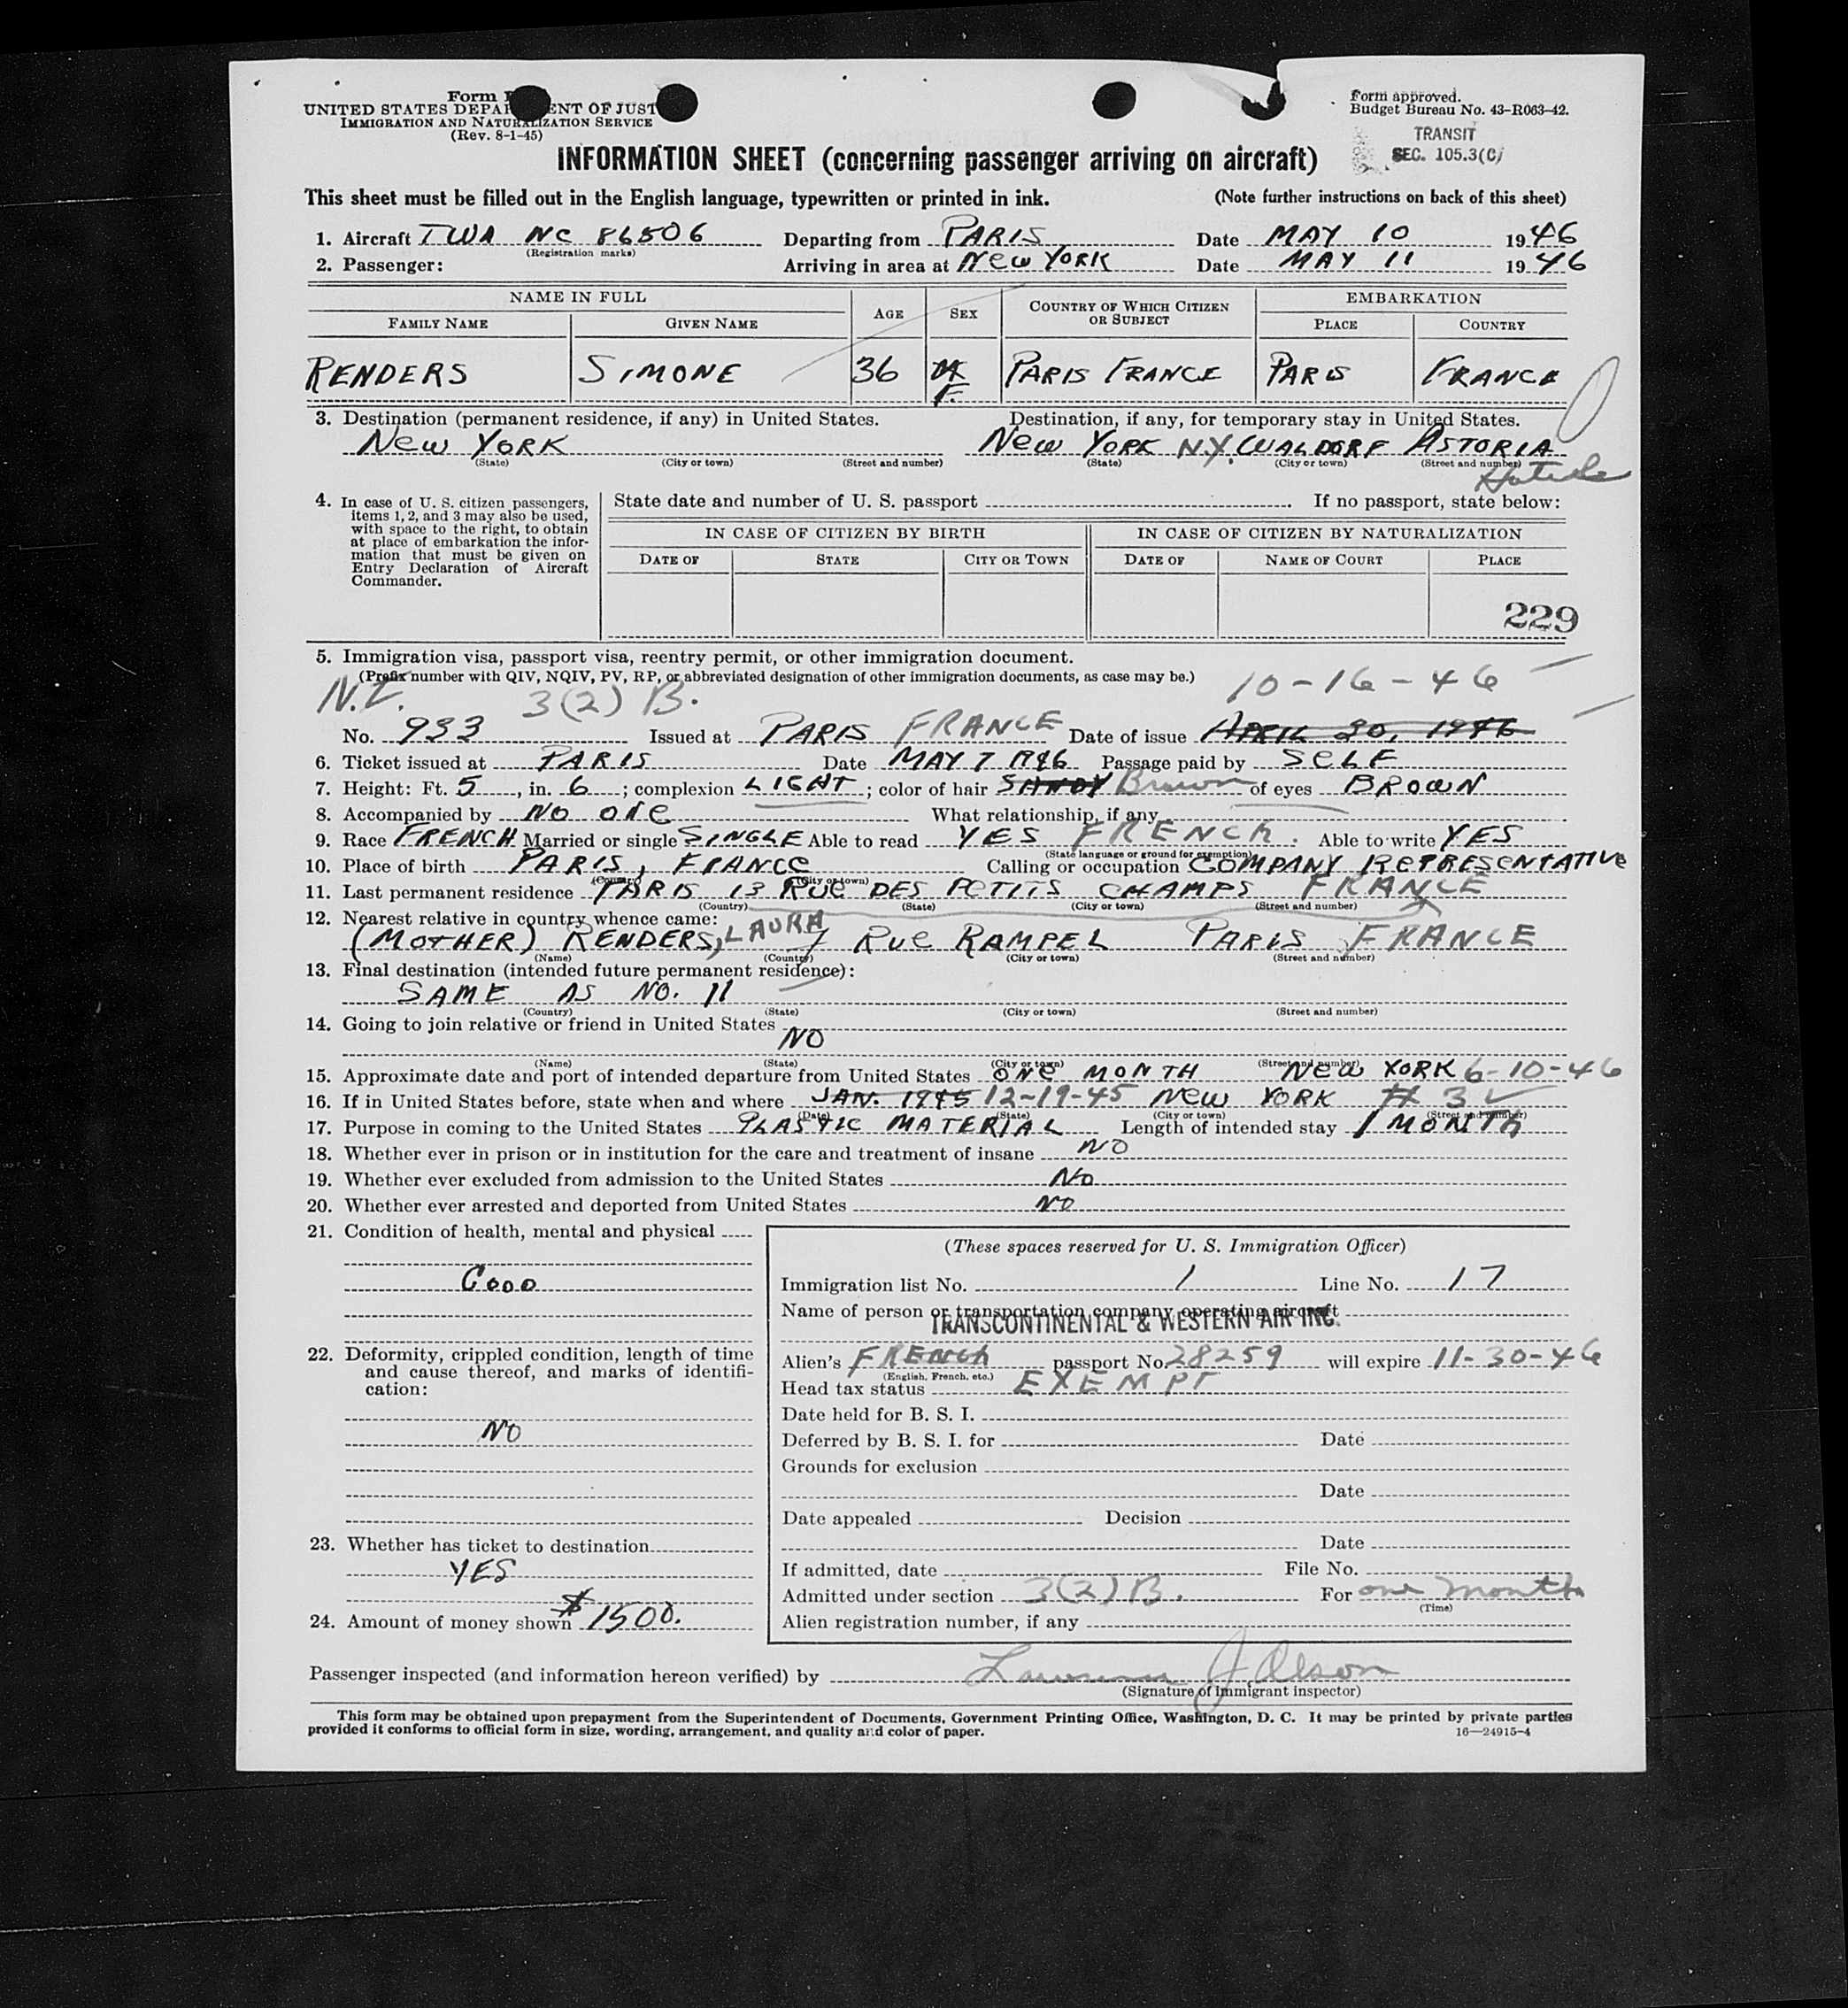 Form
UNITED STATES DEPA ENT OF JUST
IMMIGRATION AND NATURALIZATION SERVICE
(Rev. 8-1-45)
Form approved.
Budget Bureau No. 43-R063-42.
TRANSIT
SEC. 105.3(C)
INFORMATION SHEET (concerning passenger arriving on aircraft)
This sheet must be filled out in the English language, typewritten or printed in ink. (Note further instructions on back of this sheet)
1. Aircraft TWA NC 86506 Departing from PARIS Date MAY 10 1946
(Registration marks)
2. Passenger: Arriving in area at NEW YORK Date MAY 11 1946
NAME IN FULL AGE SEX COUNTRY OF WHICH CITIZEN OR SUBJECT EMBARKATION
FAMILY NAME GIVEN NAME PLACE COUNTRY
RENDERS SIMONE 36 M F. PARIS FRANCE PARIS FRANCE
3. Destination (permanent residence, if any) in United States. Destination, if any, for temporary stay in United States.
NEW YORK NEW YORK N.Y. WALDORF ASTORIA
(State) (City or town) (Street and number) (State) (City or town) (Street and number)
4. In case of U. S. citizen passengers, items 1, 2, and 3 may also be used, with space to the right, to obtain at place of embarkation the information that must be given on Entry Declaration of Aircraft Commander.
State date and number of U. S. passport . If no passport, state below:
IN CASE OF CITIZEN BY BIRTH IN CASE OF CITIZEN BY NATURALIZATION
DATE OF STATE CITY OR TOWN DATE OF NAME OF COURT PLACE
229
5. Immigration visa, passport visa, reentry permit, or other immigration document.
(Prefix number with QIV, NQIV, PV, RP, or abbreviated designation of other immigration documents, as case may be.)
3(2) B. 10-16-46
No. 933 Issued at PARIS FRANCE Date of issue APRIL 30, 1946
6. Ticket issued at PARIS Date MAY 7 1946 Passage paid by SELF
7. Height: Ft. 5, in. 6; complexion LIGHT; color of hair SANDY Brown of eyes BROWN
8. Accompanied by NO ONE What relationship, if any
9. Race FRENCH Married or single SINGLE Able to read YES FRENCH. Able to write YES
(State language or ground for exemption)
10. Place of birth PARIS, FRANCE Calling or occupation COMPANY REPRESENTATIVE
(Country) (City or town)
11. Last permanent residence PARIS 13 RUE DES PETITS CHAMPS FRANCE
(Country) (State) (City or town) (Street and number)
12. Nearest relative in country whence came:
(MOTHER) RENDERS, LAURA 7 RUE RAMPEL PARIS FRANCE
(Name) (Country) (City or town) (Street and number)
13. Final destination (intended future permanent residence):
SAME AS NO. 11
(Country) (State) (City or town) (Street and number)
14. Going to join relative or friend in United States
NO
(Name) (State) (City or town) (Street and number)
15. Approximate date and port of intended departure from United States ONE MONTH NEW YORK 6-10-46
16. If in United States before, state when and where JAN. 1945 12-19-45 NEW YORK # 3
(Date) (State) (City or town) (Street and number)
17. Purpose in coming to the United States PLASTIC MATERIAL Length of intended stay 1 MONTH
18. Whether ever in prison or in institution for the care and treatment of insane NO
19. Whether ever excluded from admission to the United States NO
20. Whether ever arrested and deported from United States NO
21. Condition of health, mental and physical
GOOD
22. Deformity, crippled condition, length of time and cause thereof, and marks of identification:
NO
23. Whether has ticket to destination
YES
24. Amount of money shown $1500.
(These spaces reserved for U. S. Immigration Officer)
Immigration list No. 1 Line No. 17
Name of person or transportation company operating aircraft
TRANSCONTINENTAL & WESTERN AIR INC.
Alien's FRENCH passport No. 28259 will expire 11-30-46
(English, French, etc.)
Head tax status EXEMPT
Date held for B. S. I.
Deferred by B. S. I. for Date
Grounds for exclusion
Date
Date appealed Decision
Date
If admitted, date File No.
Admitted under section 3(2) B. For one month
(Time)
Alien registration number, if any
Passenger inspected (and information hereon verified) by Lawrence J Olson
(Signature of immigrant inspector)
This form may be obtained upon prepayment from the Superintendent of Documents, Government Printing Office, Washington, D. C. It may be printed by private parties
provided it conforms to official form in size, wording, arrangement, and quality and color of paper. 16—24915-4